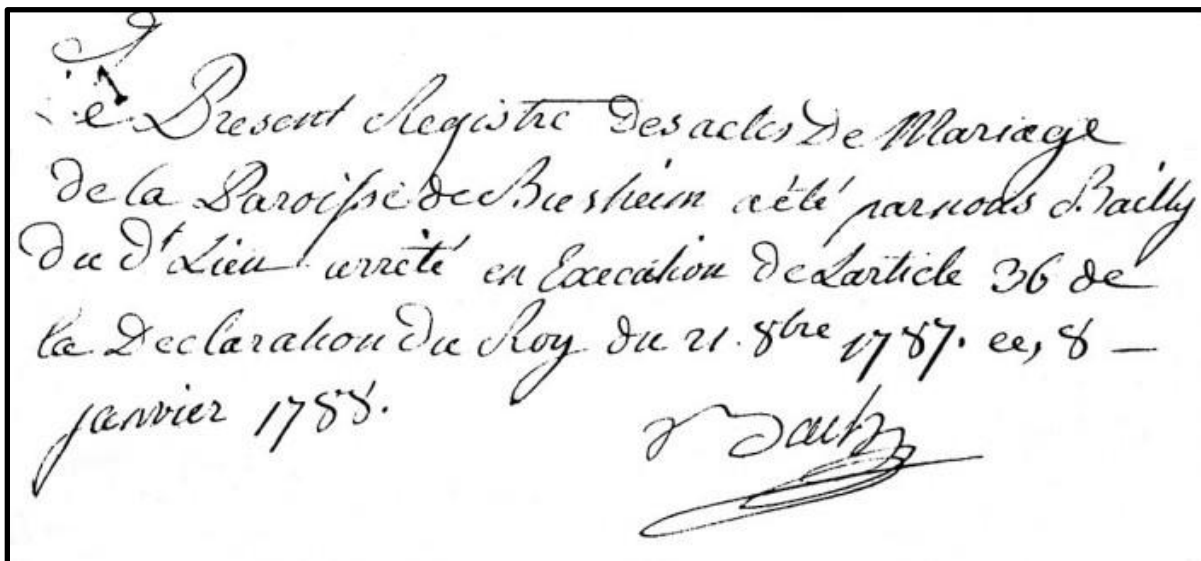 Le Present Registre Des actes De Mariage
De la Paroisse de Biesheim a été par nous Bailly
Du Dt Lieu arreté en Execution De Larticle 36 de
la Declaration Du Roy du 21. 8bre 1787. ce, 8 —
janvier 1788.